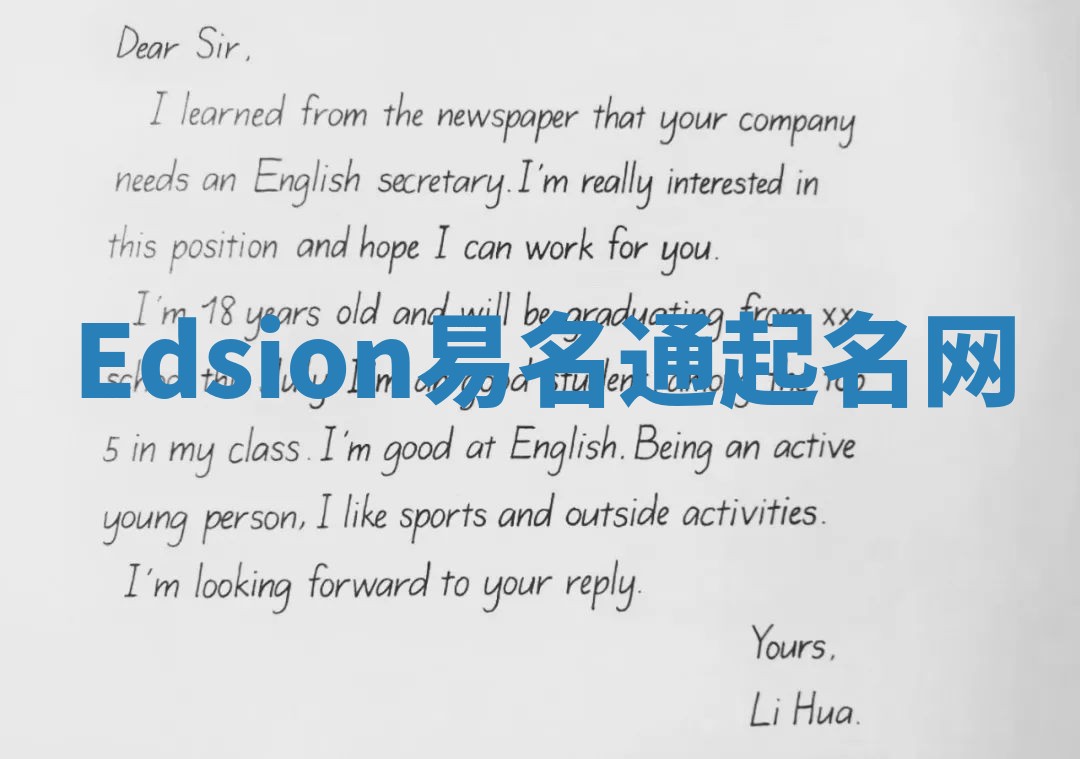 Dear Sir,
I learned from the newspaper that your company
needs an English secretary. I'm really interested in
this position and hope I can work for you.
I'm 18 years old and will be graduating from xx
Edsion易名通起名网
5 in my class. I'm good at English. Being an active
young person, I like sports and outside activities.
I'm looking forward to your reply.
Yours,
Li Hua.